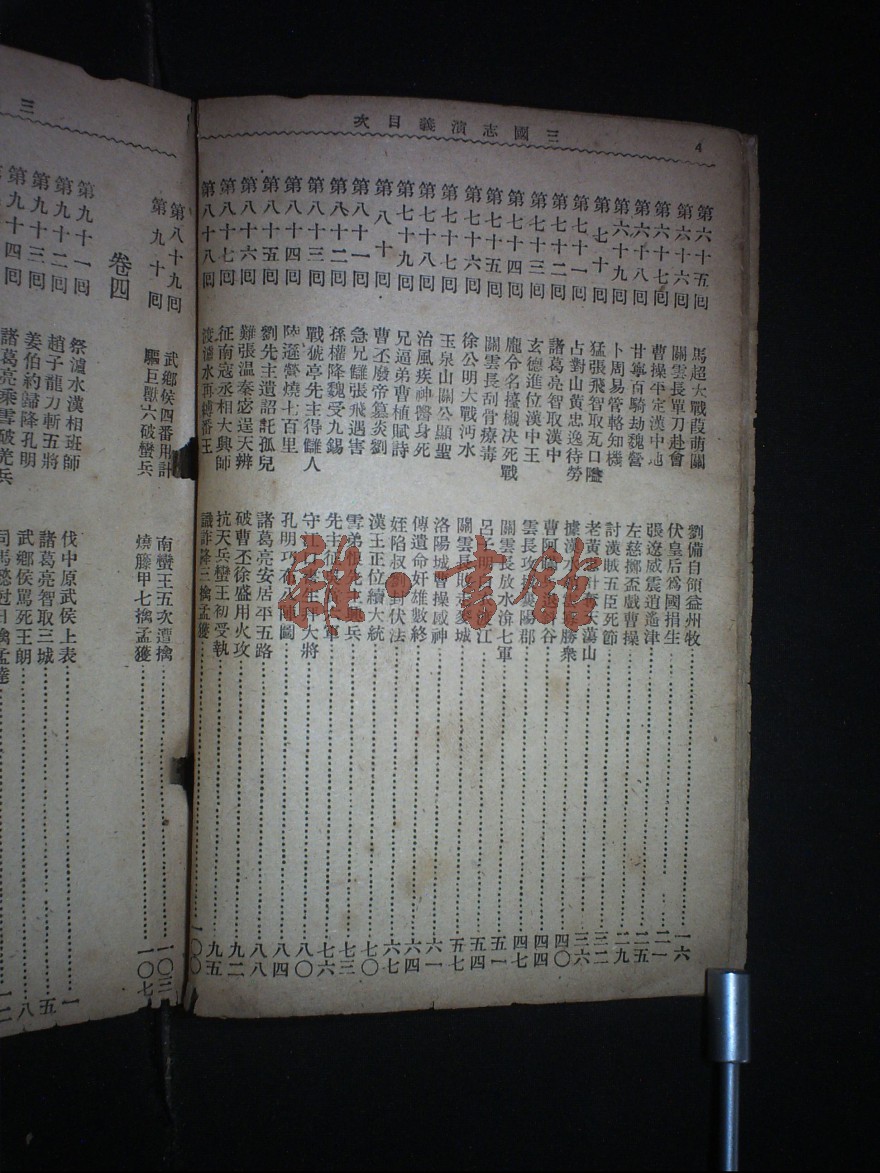 三國志演義目次
4
第六十五回 馬超大戰葭萌關 劉備自領益州牧 一六
第六十六回 關雲長單刀赴會 伏皇后爲國捐生 二一
第六十七回 曹操平定漢中地 張遼威震逍遙津 二五
第六十八回 甘寧百騎劫魏營 左慈擲盃戲曹操 二九
第六十九回 卜周易管輅知機 討漢賊五臣死節 三二
第七十回 猛張飛智取瓦口隘 老黃忠計奪天蕩山 三六
第七十一回 占對山黃忠逸待勞 據漢水 勝衆 四〇
第七十二回 諸葛亮智取漢中 曹阿 谷 四四
第七十三回 玄德進位漢中王 雲長攻 襄陽郡 四七
第七十四回 龐令名擡櫬決死戰 關雲長放水渰七軍 五一
第七十五回 關雲長刮骨療毒 呂 江 五四
第七十六回 徐公明大戰沔水 關雲 敗走麥城 五七
第七十七回 玉泉山關公顯聖 洛陽城曹操感神 六一
第七十八回 治風疾神醫身死 傳遺命奸雄數終 六四
第七十九回 兄逼弟曹植賦詩 姪陷叔劉封伏法 六七
第八十回 曹丕廢帝篡炎劉 漢王正位續大統 七〇
第八十一回 急兄讎張飛遇害 雪弟恨 兵 七三
第八十二回 孫權降魏受九錫 先主征 軍 七六
第八十三回 戰猇亭先主得讎人 守江口 大將 八〇
第八十四回 陸遜營燒七百里 孔明巧布八陣圖 八四
第八十五回 劉先主遺詔託孤兒 諸葛亮安居平五路 八八
第八十六回 難張溫秦宓逞天辨 破曹丕徐盛用火攻 九二
第八十七回 征南寇丞相大興師 抗天兵蠻王初受執 九五
第八十八回 渡瀘水再縛番王 識詐降三擒孟獲 一〇〇
三
第八十九回 武鄉侯四番用計 南蠻王五次遭擒 一〇三
第九十回 驅巨獸六破蠻兵 燒藤甲七擒孟獲 一〇七
卷四
第九十一回 祭瀘水漢相班師 伐中原武侯上表 一
第九十二回 趙子龍力斬五將 諸葛亮智取三城 五
第九十三回 姜伯約歸降孔明 武鄉侯罵死王朗 八
第九十四回 諸葛亮乘雪破羌兵 司馬懿尅日擒孟達 一二
雜·書館